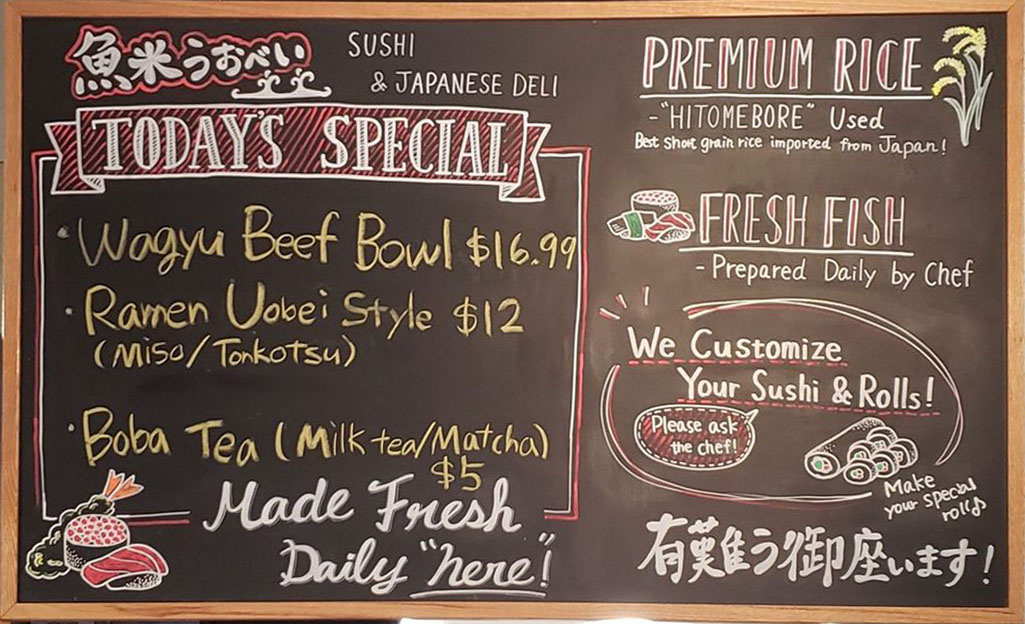 魚米うおべい
SUSHI
& JAPANESE DELI
TODAY'S SPECIAL
・Wagyu Beef Bowl $16.99
・Ramen Uobei Style $12
(Miso/Tonkotsu)
・Boba Tea (Milk tea/Matcha)
$5
Made Fresh
Daily "here"!
PREMIUM RICE
- "HITOMEBORE" Used
Best short grain rice imported from Japan!
FRESH FISH
- Prepared Daily by Chef
We Customize
Your Sushi & Rolls!
Please ask
the chef!
Make
your special
rolls
有難う御座います!